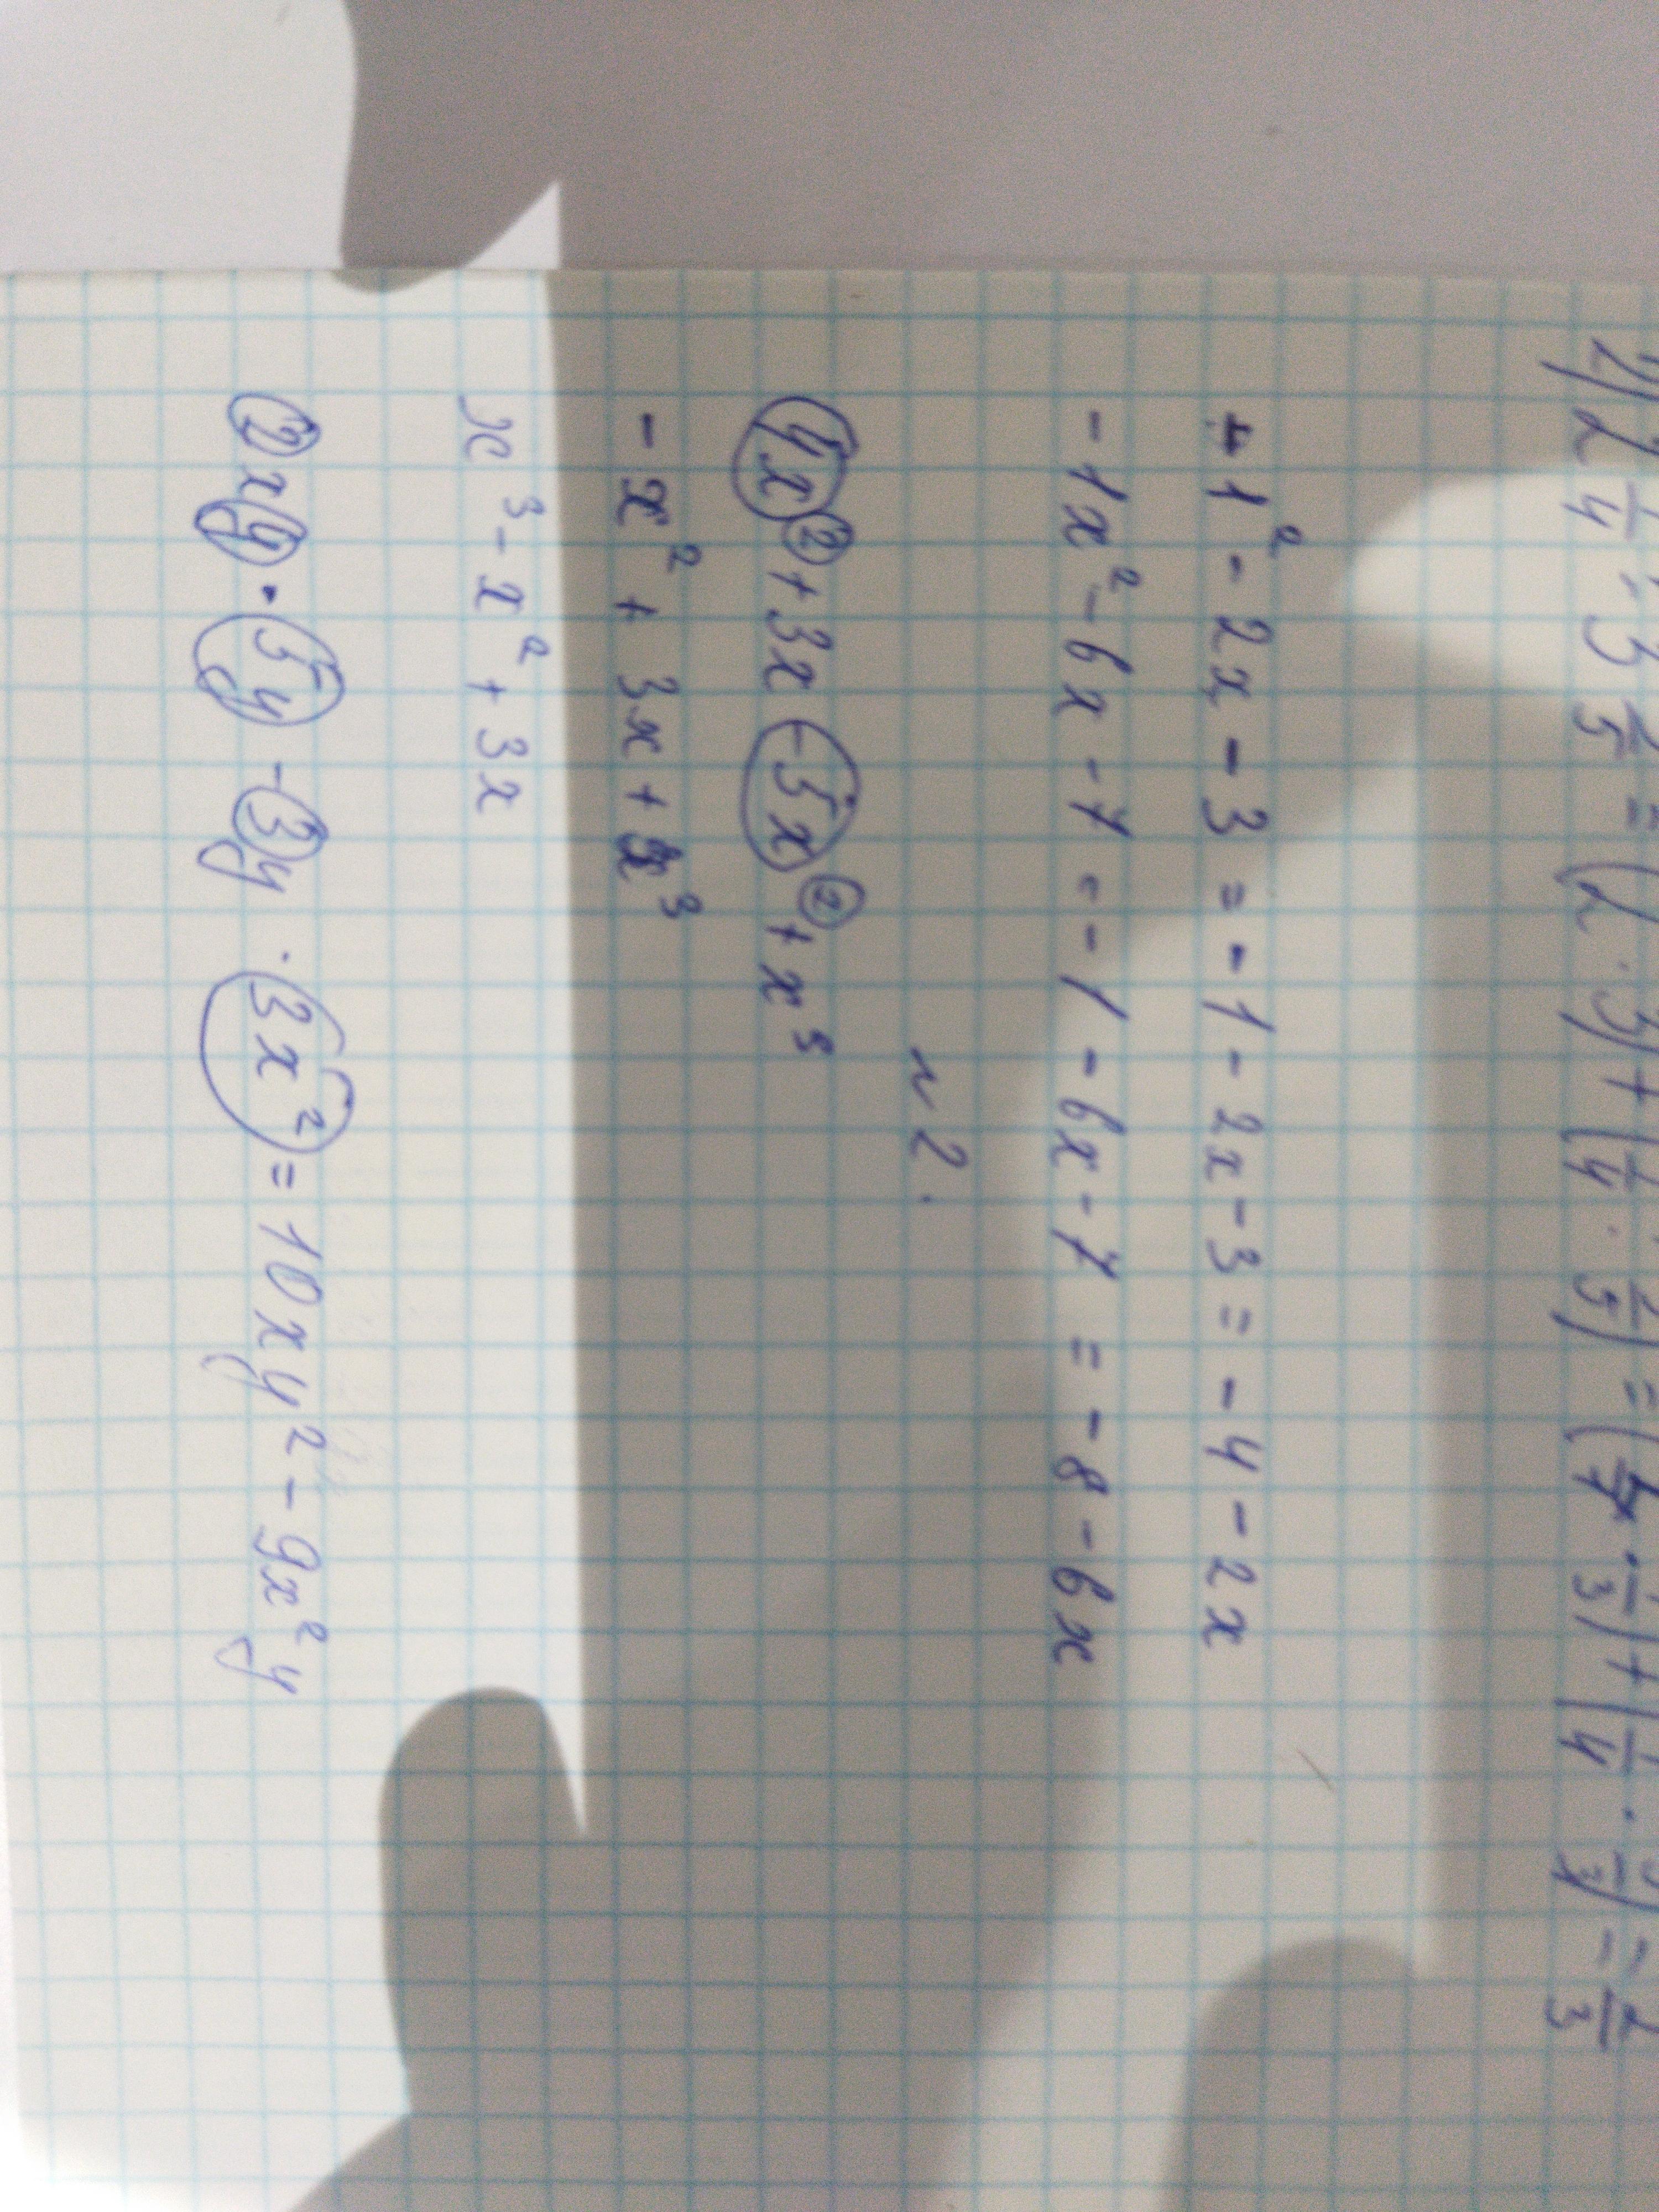 2) 2 1/4 : 3 2/5 = (2 · 3) + (1/4 · 2/5) =
- 1² - 2x - 3 = - 1 - 2x - 3 = - 4 - 2x
- 1x² - 6x - 7 = - 1 - 6x - 7 = - 8 - 6x
№ 2.
4x² + 3x - 5x² + x³
- x² + 3x + x³
x³ - x² + 3x
2xy · 5y - 3y · 3x² = 10xy² - 9x²y